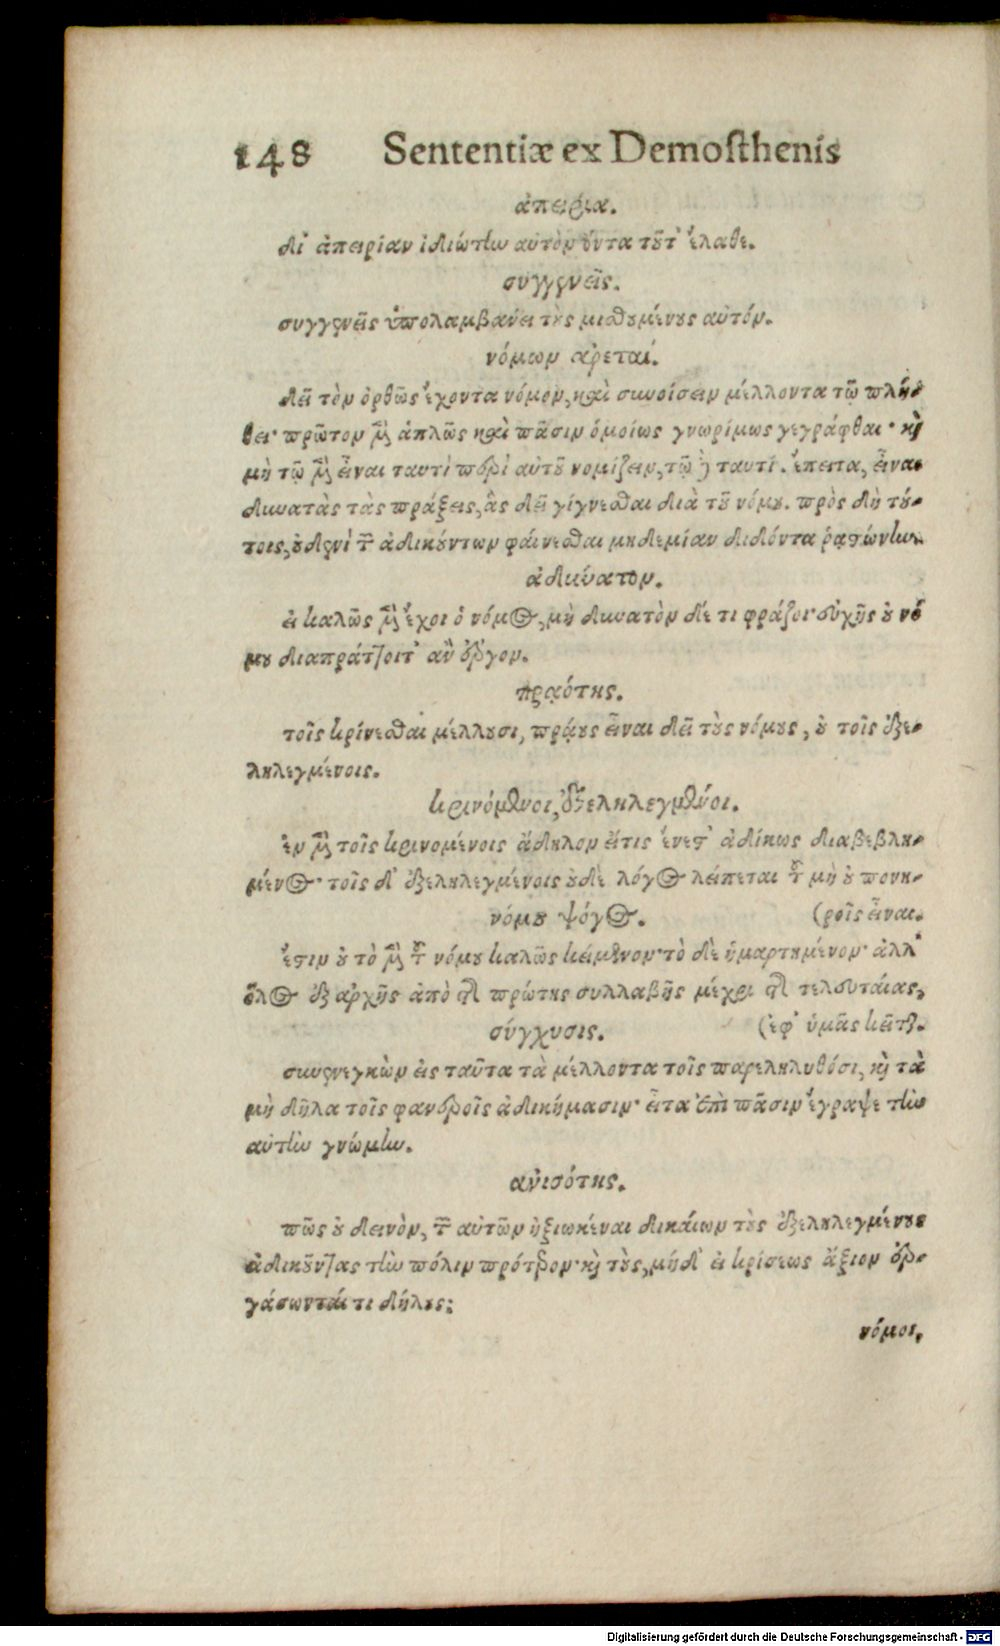 148 Sententiæ ex Demosthenis
ἀπειρία.
δι᾽ ἀπειρίαν ἰδιώτην αὐτὸν ὄντα τοῦτ᾽ ἔλαθε.
συγγενεῖς.
συγγενεῖς ὑπολαμβάνει τοὺς μισθουμένους αὐτόν.
νόμων ἀρεταί.
δεῖ τὸν ὀρθῶς ἔχοντα νόμον, καὶ συνοίσειν μέλλοντα τῷ πλή-
θει· πρῶτον μὲν ἁπλῶς καὶ πᾶσιν ὁμοίως γνωρίμως γεγράφθαι· καὶ
μὴ τῷ μὲν εἶναι ταυτὶ περὶ αὐτοῦ νομίζειν, τῷ δὲ ταυτί. ἔπειτα, εἶναι
δυνατὰς τὰς πράξεις, ἃς δεῖ γίγνεσθαι διὰ τοῦ νόμου. πρὸς δὴ τού-
τοις, οὐδενὶ τῶν ἀδικούντων φαίνεσθαι μηδεμίαν διδόντα ῥᾳστώνην.
ἀδύνατον.
εἰ καλῶς μὲν ἔχοι ὁ νόμος, μὴ δυνατὸν δέ τι φράζοι· εὐχῆς οὐ νό
μου διαπράττοιτ᾽ ἂν ἔργον.
πραότης.
τοῖς κρίνεσθαι μέλλουσι, πράους εἶναι δεῖ τοὺς νόμους, οὐ τοῖς ἐξε-
ληλεγμένοις.
κρινόμενοι, ἐξεληλεγμένοι.
ἐν μὲν τοῖς κρινομένοις ἄδηλον εἴτις ἔνεστ᾽ ἀδίκως διαβεβλη-
μένος· τοῖς δ᾽ ἐξεληλεγμένοις οὐδὲ λόγος λείπεται τοῦ μὴ οὐ πονη-
νόμου ψόγος. (ροῖς εἶναι.
ἔστιν οὐ τὸ μὲν τοῦ νόμου καλῶς κείμενον· τὸ δὲ ἡμαρτημένον· ἀλλ᾽
ὅλος ἐξ ἀρχῆς ἀπὸ τῆς πρώτης συλλαβῆς μέχρι τῆς τελευταίας,
σύγχυσις. (ἐφ᾽ ὑμᾶς κεῖται.
συνενεγκὼν εἰς ταῦτα τὰ μέλλοντα τοῖς παρεληλυθόσι, καὶ τὰ
μὴ δῆλα τοῖς φανεροῖς ἀδικήμασιν· εἶτα ἐπὶ πᾶσιν ἔγραψε τὴν
αὐτὴν γνώμην.
ἀνισότης.
πῶς οὐ δεινὸν, τῶν αὐτῶν ἠξιωκέναι δικαίων τοὺς ἐξεληλεγμένους
ἀδικοῦντας τὴν πόλιν πρότερον· καὶ τοὺς, μήδ᾽ εἰ κρίσεως ἄξιον ἐρ-
γάσωνταί τι δήλους;
νόμοι,
Digitalisierung gefördert durch die Deutsche Forschungsgemeinschaft - DFG